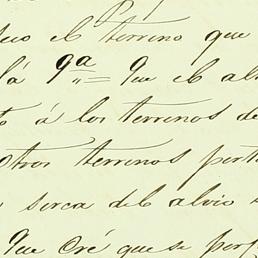 el terreno que
la 9ª = Que el al
á los terrenos de
Otros terrenos pert
serca del alvio
Que Cré que se per